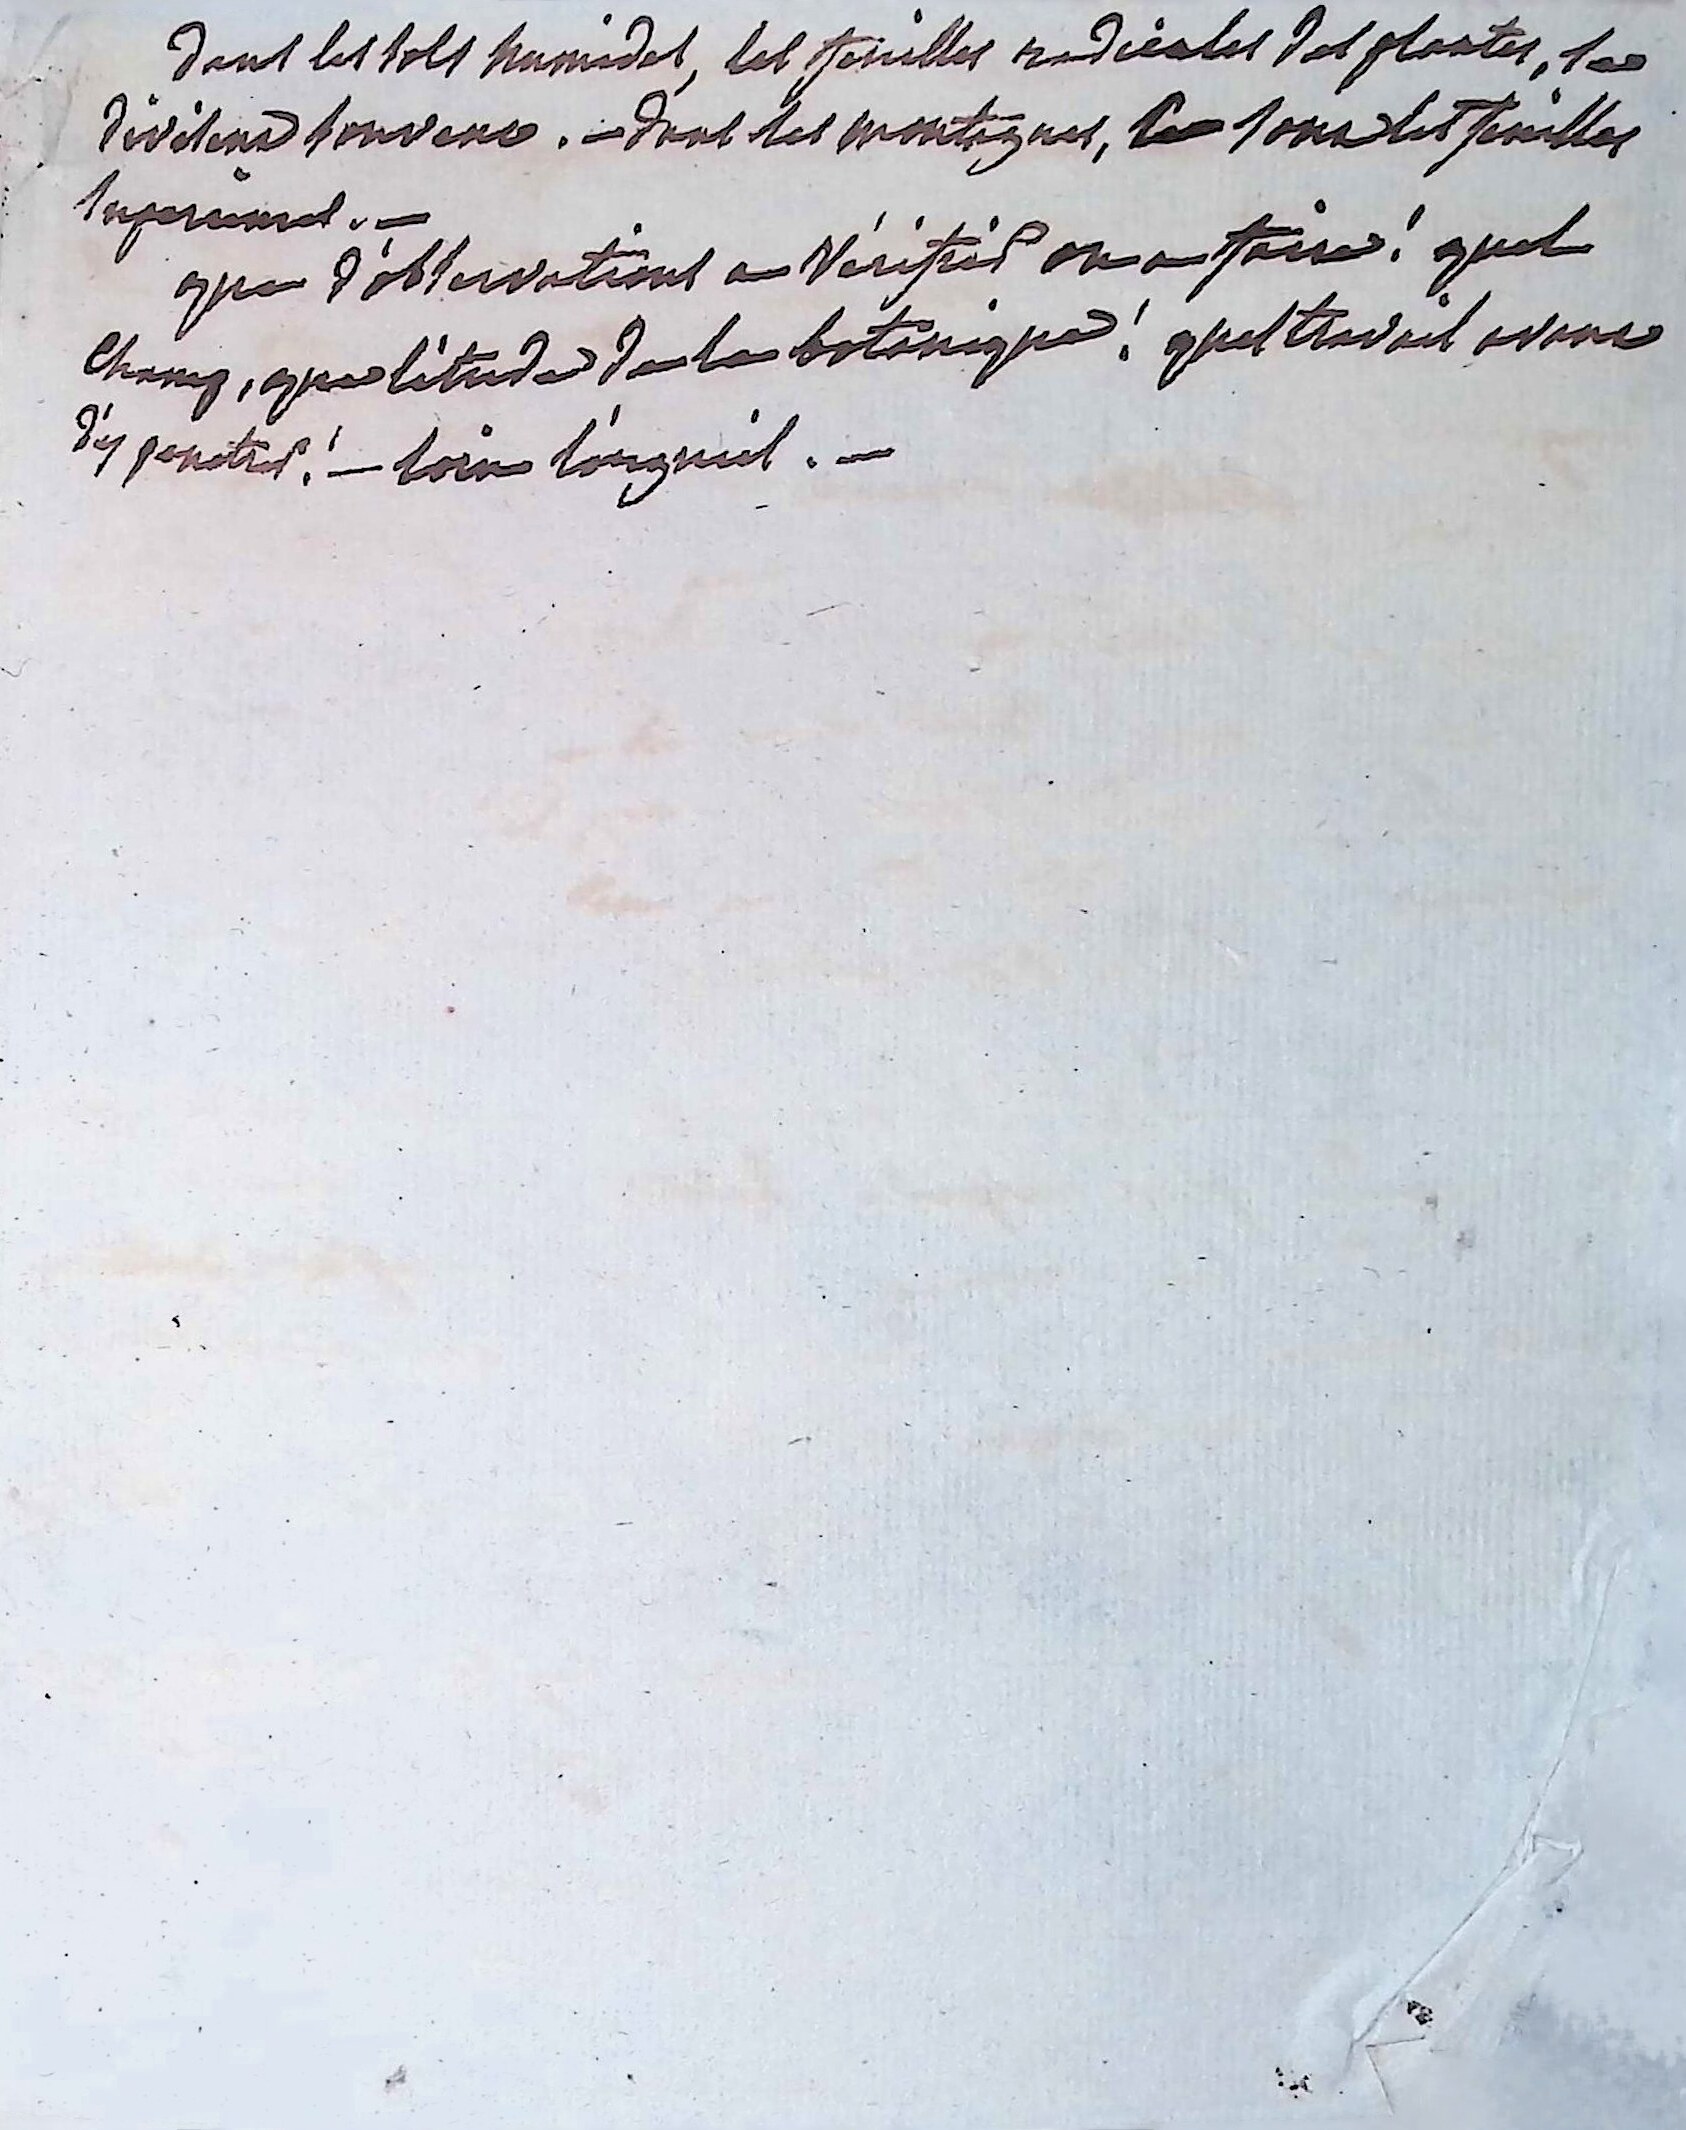 dans les sols humides, les feuilles radicales des plantes, se
divisent souvent. — dans les montagnes, ce sont les feuilles
superieures. —
que d'observations a vérifier on a faire! quel
champ, que l'étude de la botanique! quel travail avant
d'y penetrer! — loin l'orgueil. —